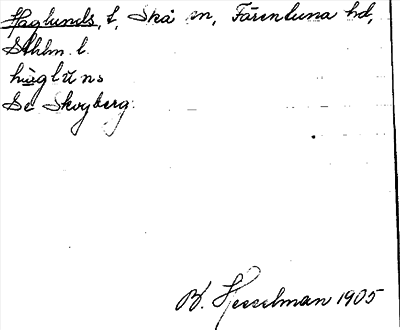 Häglunds, t, Skå sn, Färentuna hd,
Sthlm l.
hä̀glu̇ns
Se Skogberg.
B. Hesselman 1905